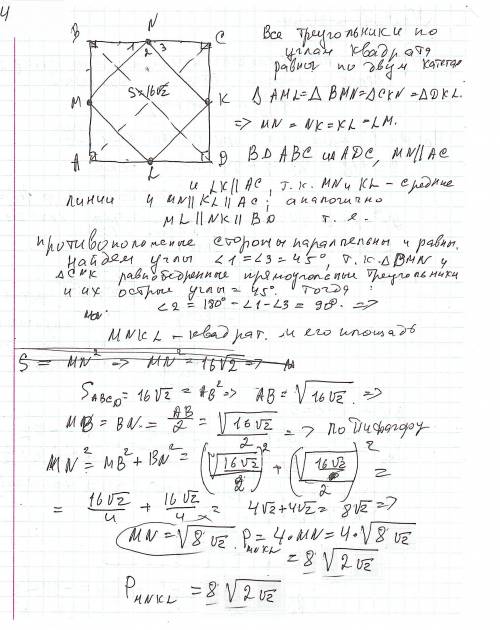 4
B N C
1 2 3
S=16√2
M K
A L D
Все треугольники по
углам квадрата
равны по двум катетам
△AML=△BMN=△CKN=△DKL.
=> MN=NK=KL=LM.
В △ ABC и ADC, MN||AC
и LK||AC, т.к. MN и KL - средние
линии и MN||KL||AC; аналогично
ML||NK||BD т.е.
противоположные стороны параллельны и равны.
Найдем углы ∠1=∠3=45°, т.к. △BMN и
△CNK равнобедренные прямоугольные треугольники
и их острые углы = 45°. Тогда
∠2=180°-∠1-∠3=90°. =>
MNKL - квадрат. и его площадь
S = MN² => MN² = 16√2 =>
S ABCD = 16√2 = AB² => AB = √16√2 =>
MB = BN = AB/2 = √16√2/2 => по Пифагору
MN² = MB² + BN² = (√16√2/2)² + (√16√2/2)² =
= 16√2/4 + 16√2/4 = 4√2+4√2 = 8√2 =>
MN = √8√2. P MNKL = 4·MN = 4·√8√2
= 8√2√2
P MNKL = 8√2√2